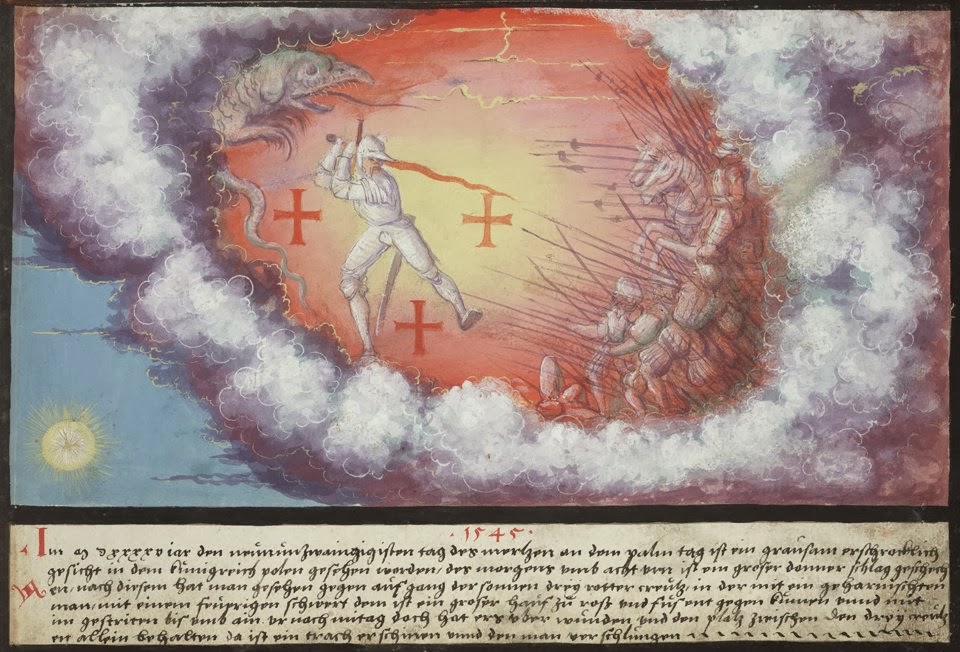 · 1545 ·
Im m dxxxxv iar den neününzwaingigisten tag des mertzen an dem palm tag ist ein grausam erschrocklich
gesicht in dem künigreich polen gesehen worden, des morgens vmb acht vrr ist ein groser donner schlag geschech
en, nach disem hat man gesehen gegen aufgang der sonnen drey rotter creütz, in der mit ein geharnischten
man, mit einem feüerigen schwert dem ist ein groser hauf zu roß vnd füs ent gegen kumen vnnd mit
im gestriten bis vmb ain vr nach mitag doch hat ers vber wunden vnd den platz zwischen den drey creütz
en allein behalten da ist ein trach erschinen vnnd den man verschlungen